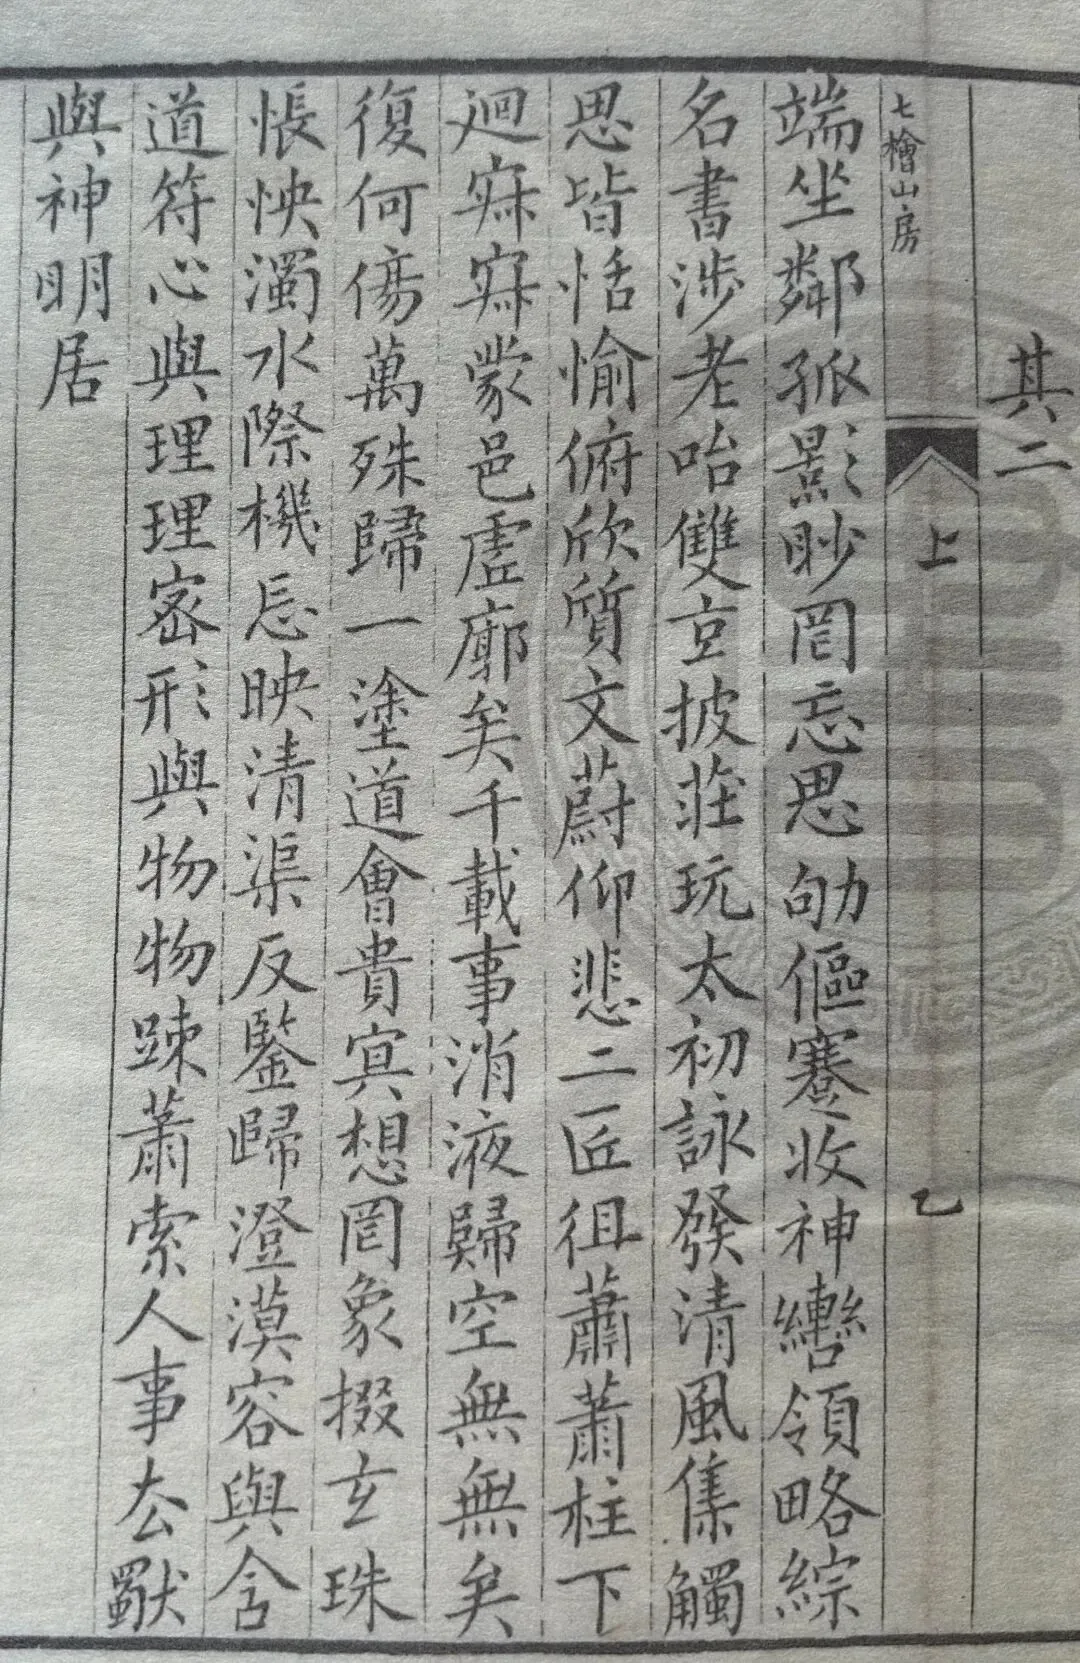 其二
七檜山房
上
乙
端坐鄰孤影眇罔忘思劬傴蹇收神轡領略綜
名書涉老咍雙玄披莊玩太初詠發清風集觸
思皆恬愉俯欣質文蔚仰悲二匠徂蕭蕭柱下
迴寂寂蒙邑虛廓矣千載事消液歸空無無矣
復何傷萬殊歸一塗道會貴冥想罔象掇玄珠
悵怏濁水際機忘映清渠反鑒歸澄漠容與含
道符心與理理密形與物物踈蕭索人事去獸
與神明居